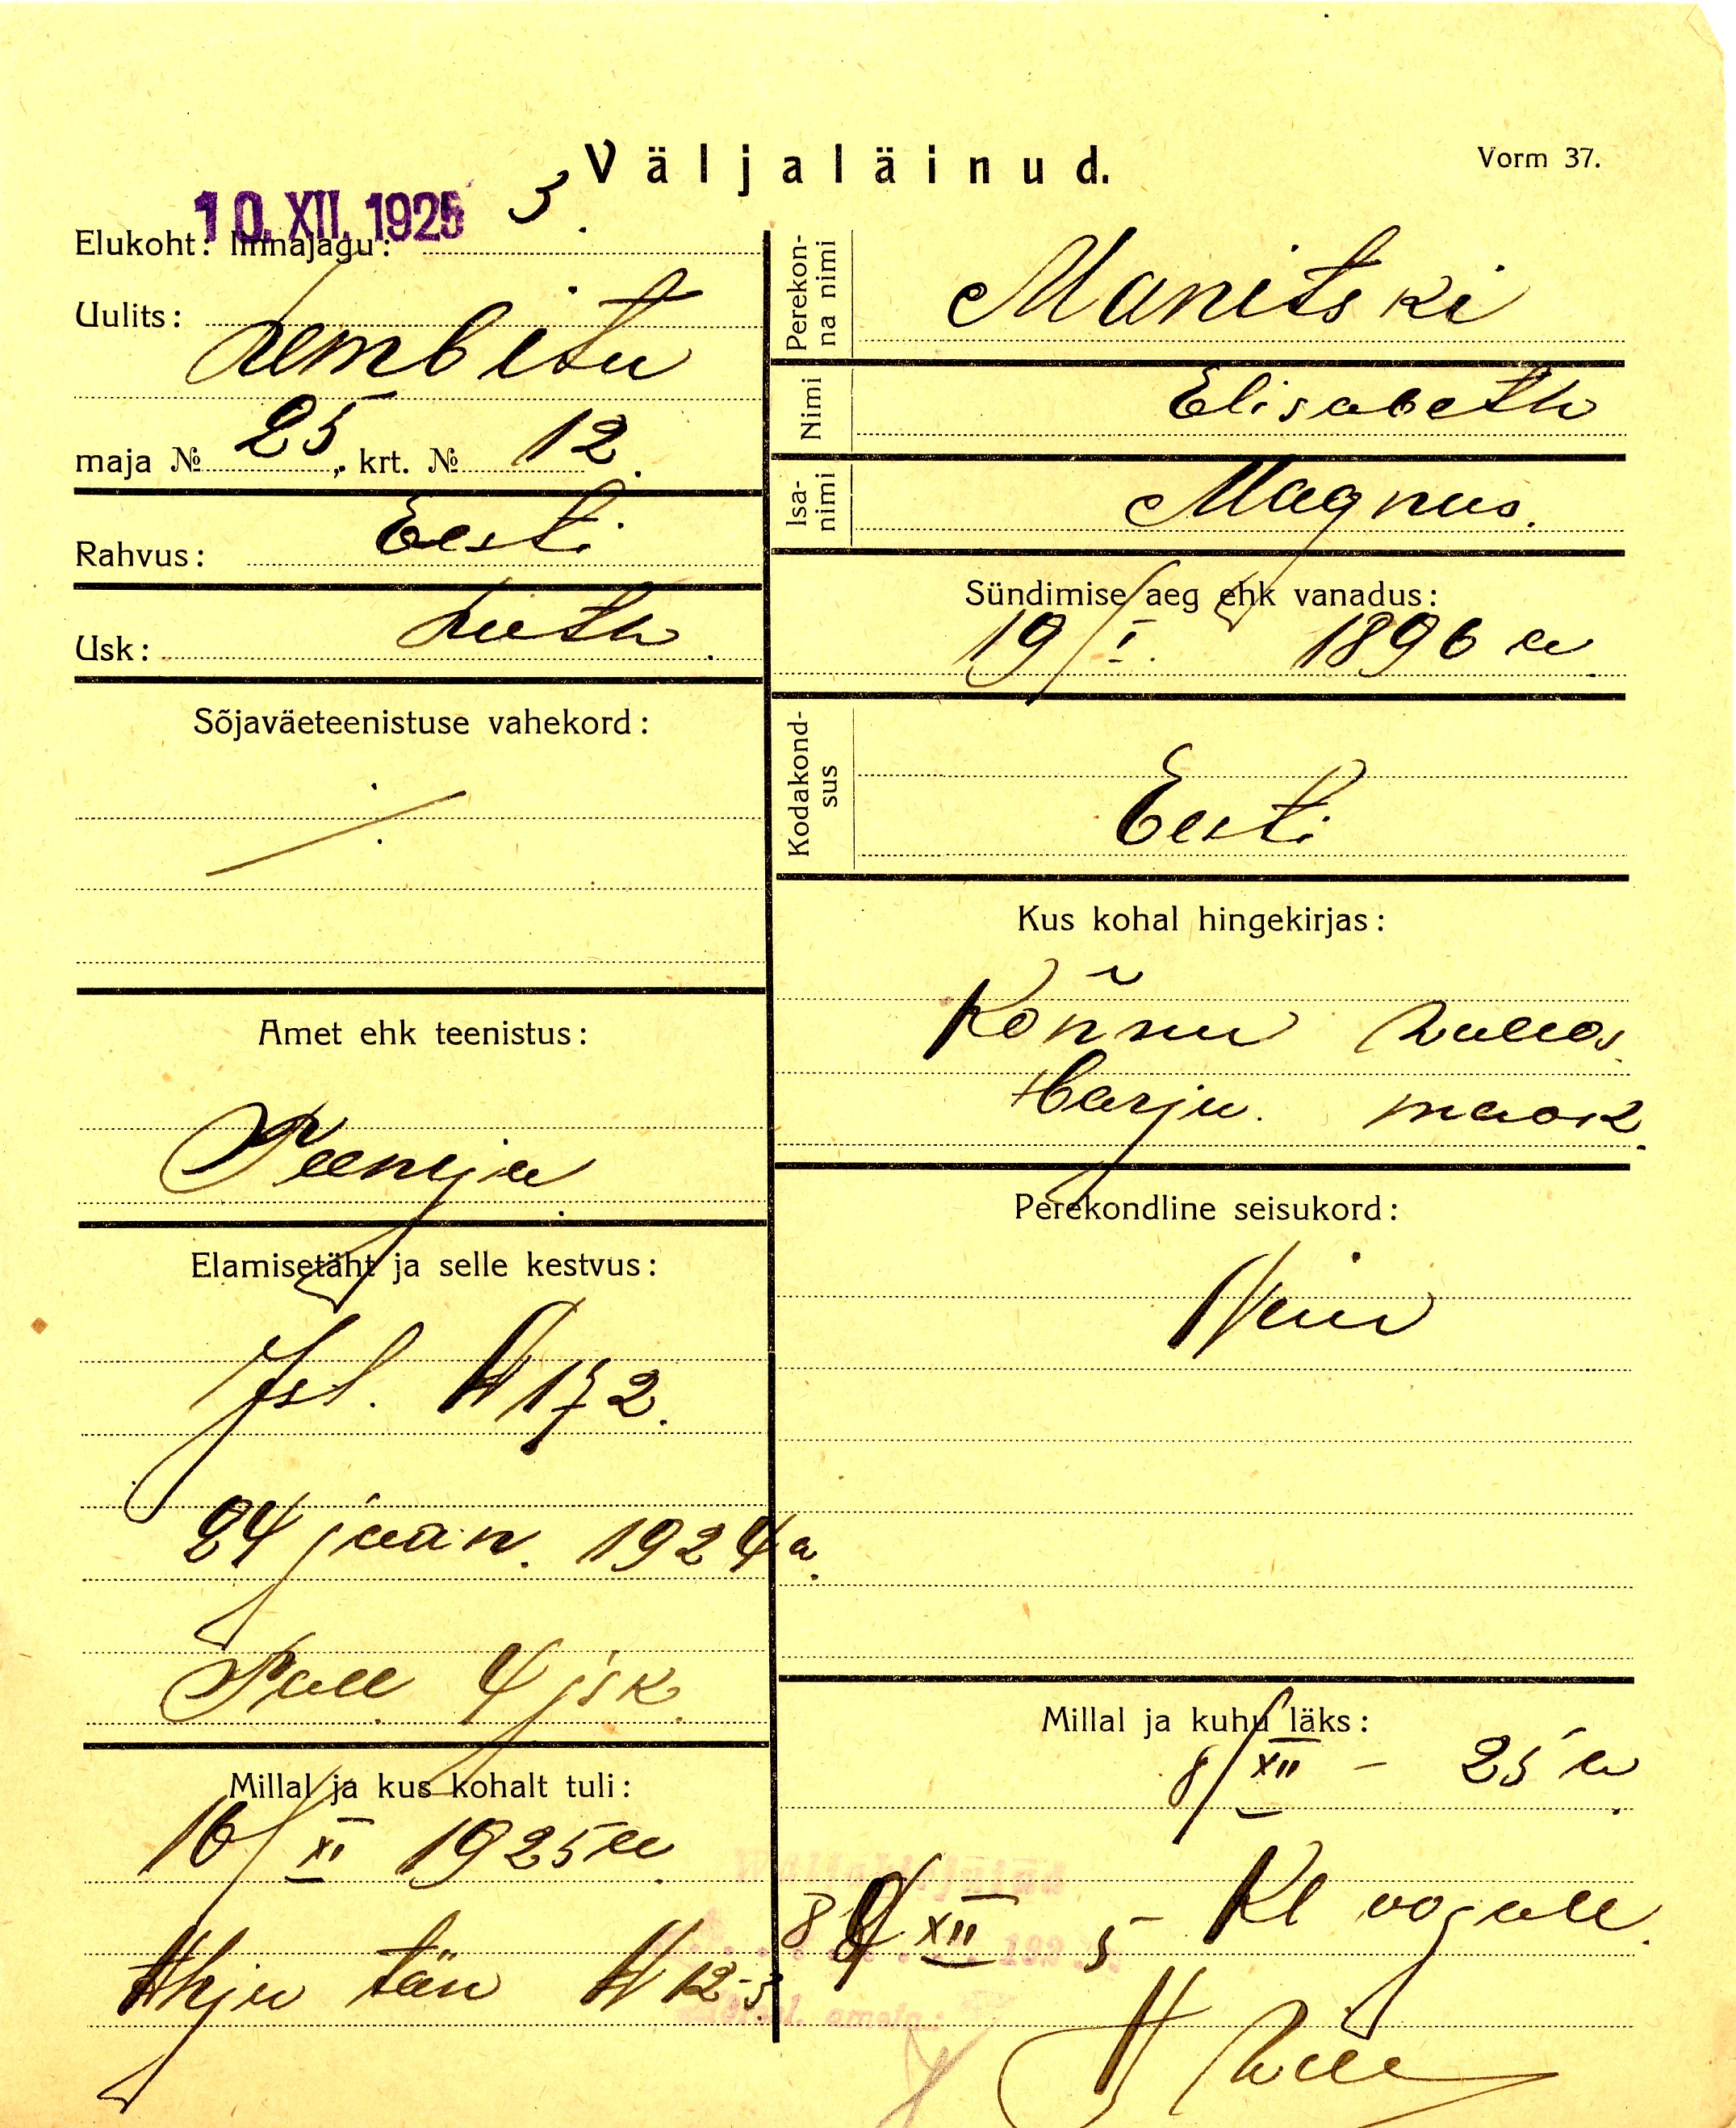 Väljaläinud.
Vorm 37.
10. XII. 1925
3
Elukoht: linnajagu:
Uulits:
Lembitu
maja № 25, krt. № 12.
Rahvus: Eesti
Usk: Luth.
Sõjaväeteenistuse vahekord:
Amet ehk teenistus:
Teenija
Elamisetäht ja selle kestvus:
Isl. № 172.
24 jaan. 1924 a.
Tall. 4 jsk.
Millal ja kus kohalt tuli:
16/XI 1925 a.
Ahju tän № 12-3
Perekon-
na nimi
Manitski
Nimi
Elisabeth
Isa-
nimi
Magnus.
Sündimise aeg ehk vanadus:
19/I. 1896 a.
Kodakond-
sus
Eesti
Kus kohal hingekirjas:
Kõnnu vallas
Harju. maak.
Perekondline seisukord:
Neiu
Millal ja kuhu läks:
8/XII – 25 a.
Kl
8 XII 5